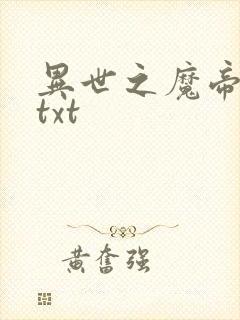 異世之魔帝
txt
黄奮强